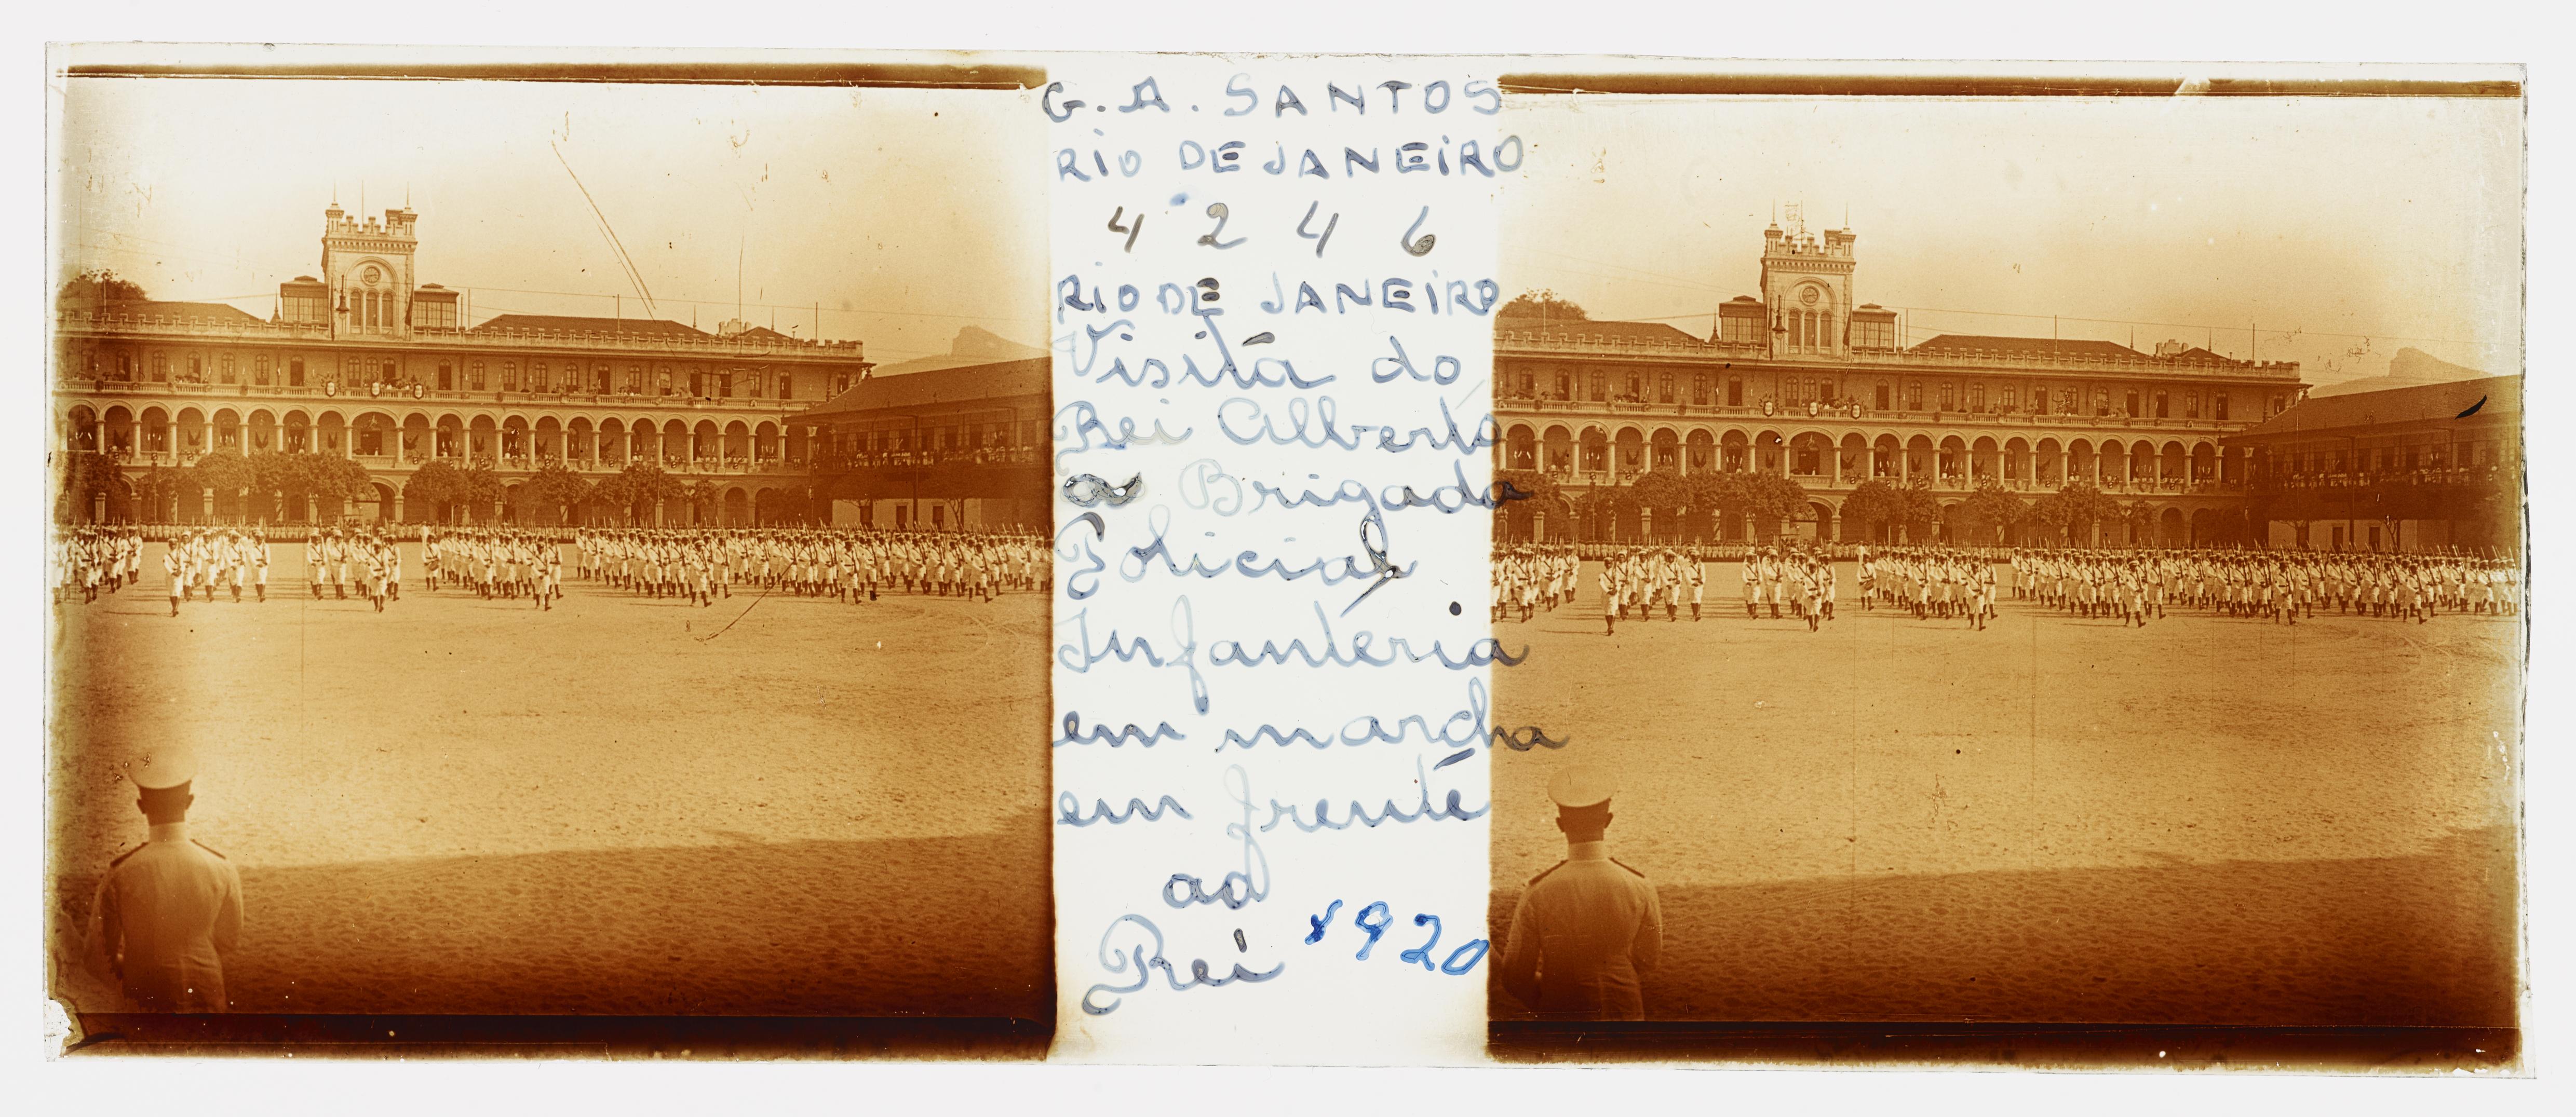 G. A. SANTOS
RIO DE JANEIRO
4246
RIO DE JANEIRO
Visita do
Rei Alberto
a Brigada
Policial
Infanteria
em marcha
em frente
ao
Rei 1920